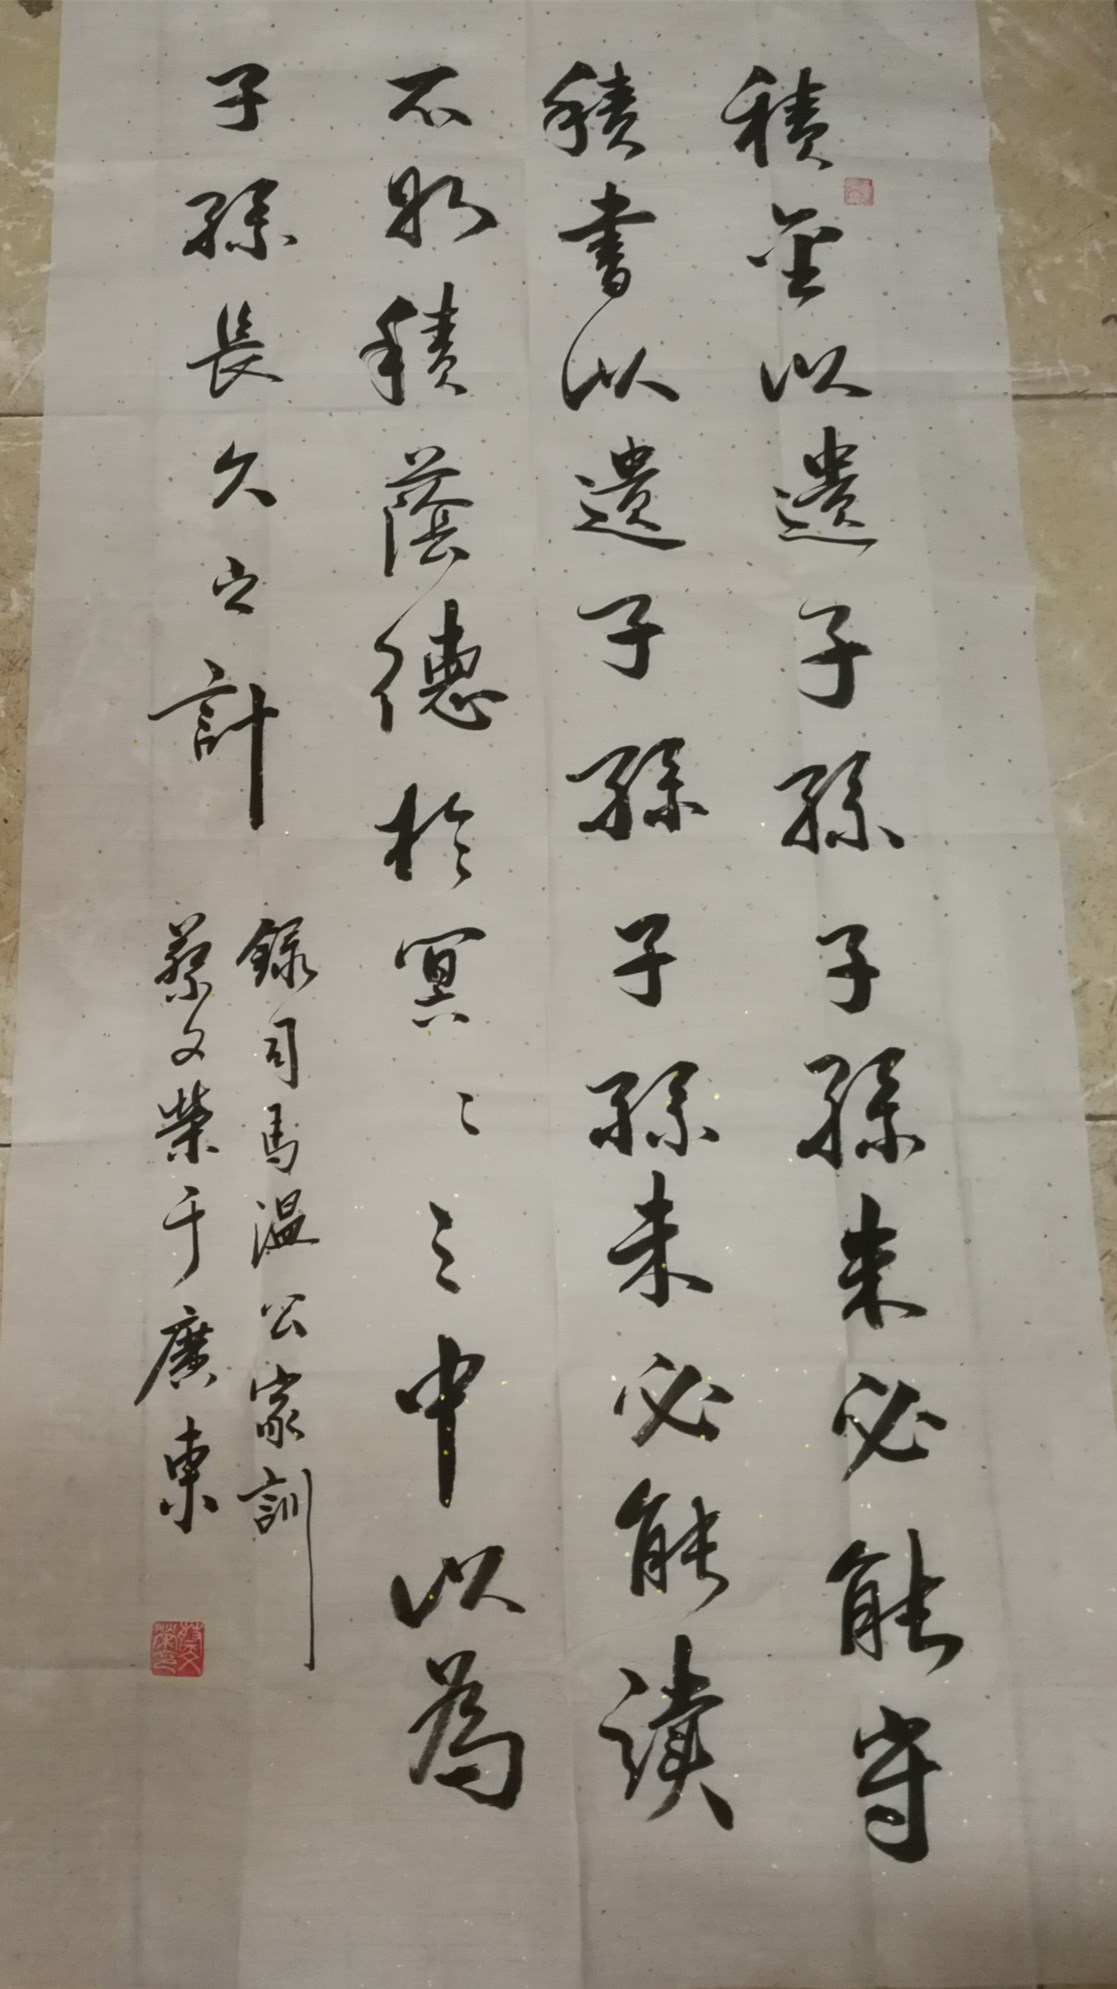 積金以遺子孫子孫未必能守
積書以遺子孫子孫未必能讀
不如積蔭德於冥〻之中以為
子孫長久之計
錄司馬温公家訓
蔡文榮于廣東
蔡文榮印